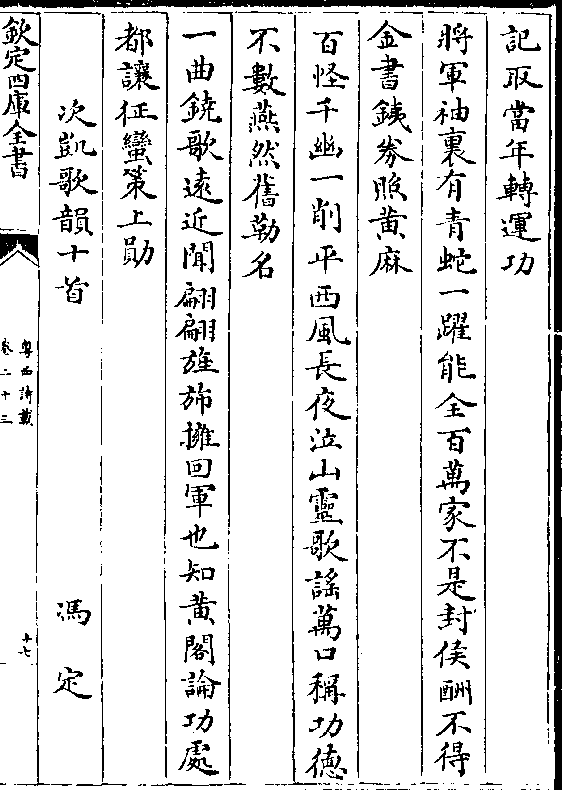 記取當年轉運功
將軍袖裏有青蛇一躍能全百萬家不是封侯酬不得
金書鐵劵照黄麻
百怪千幽一削平西風長夜泣山靈歌謡萬口稱功徳
不數燕然舊勒名
一曲鐃歌遠近聞翩翩旌斾擁回軍也知黄閣論功處
都讓征蠻策上勛
次凱歌韻十首　馮定
欽定四庫全書
粤西詩載
卷二十三
十七